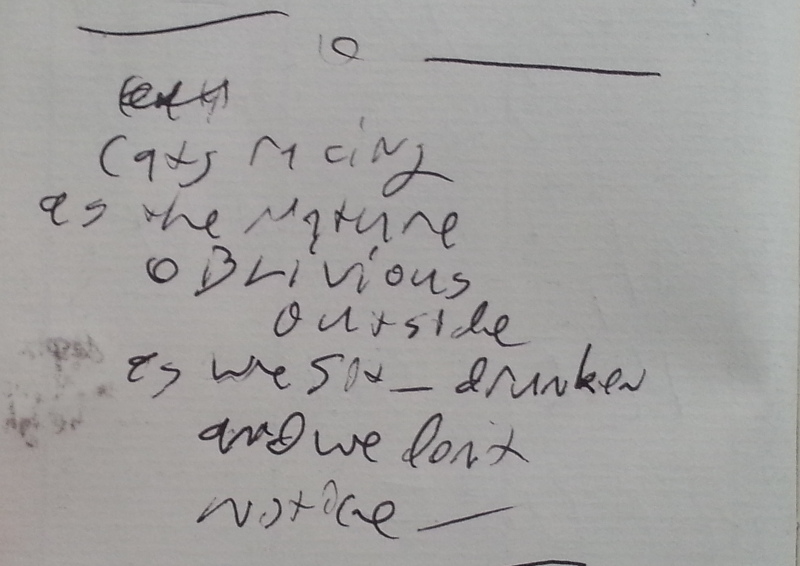 10
Cats racing
as the nature
OBLIVIOUS
outside
as we sit _ drunken
and we don't
notice —